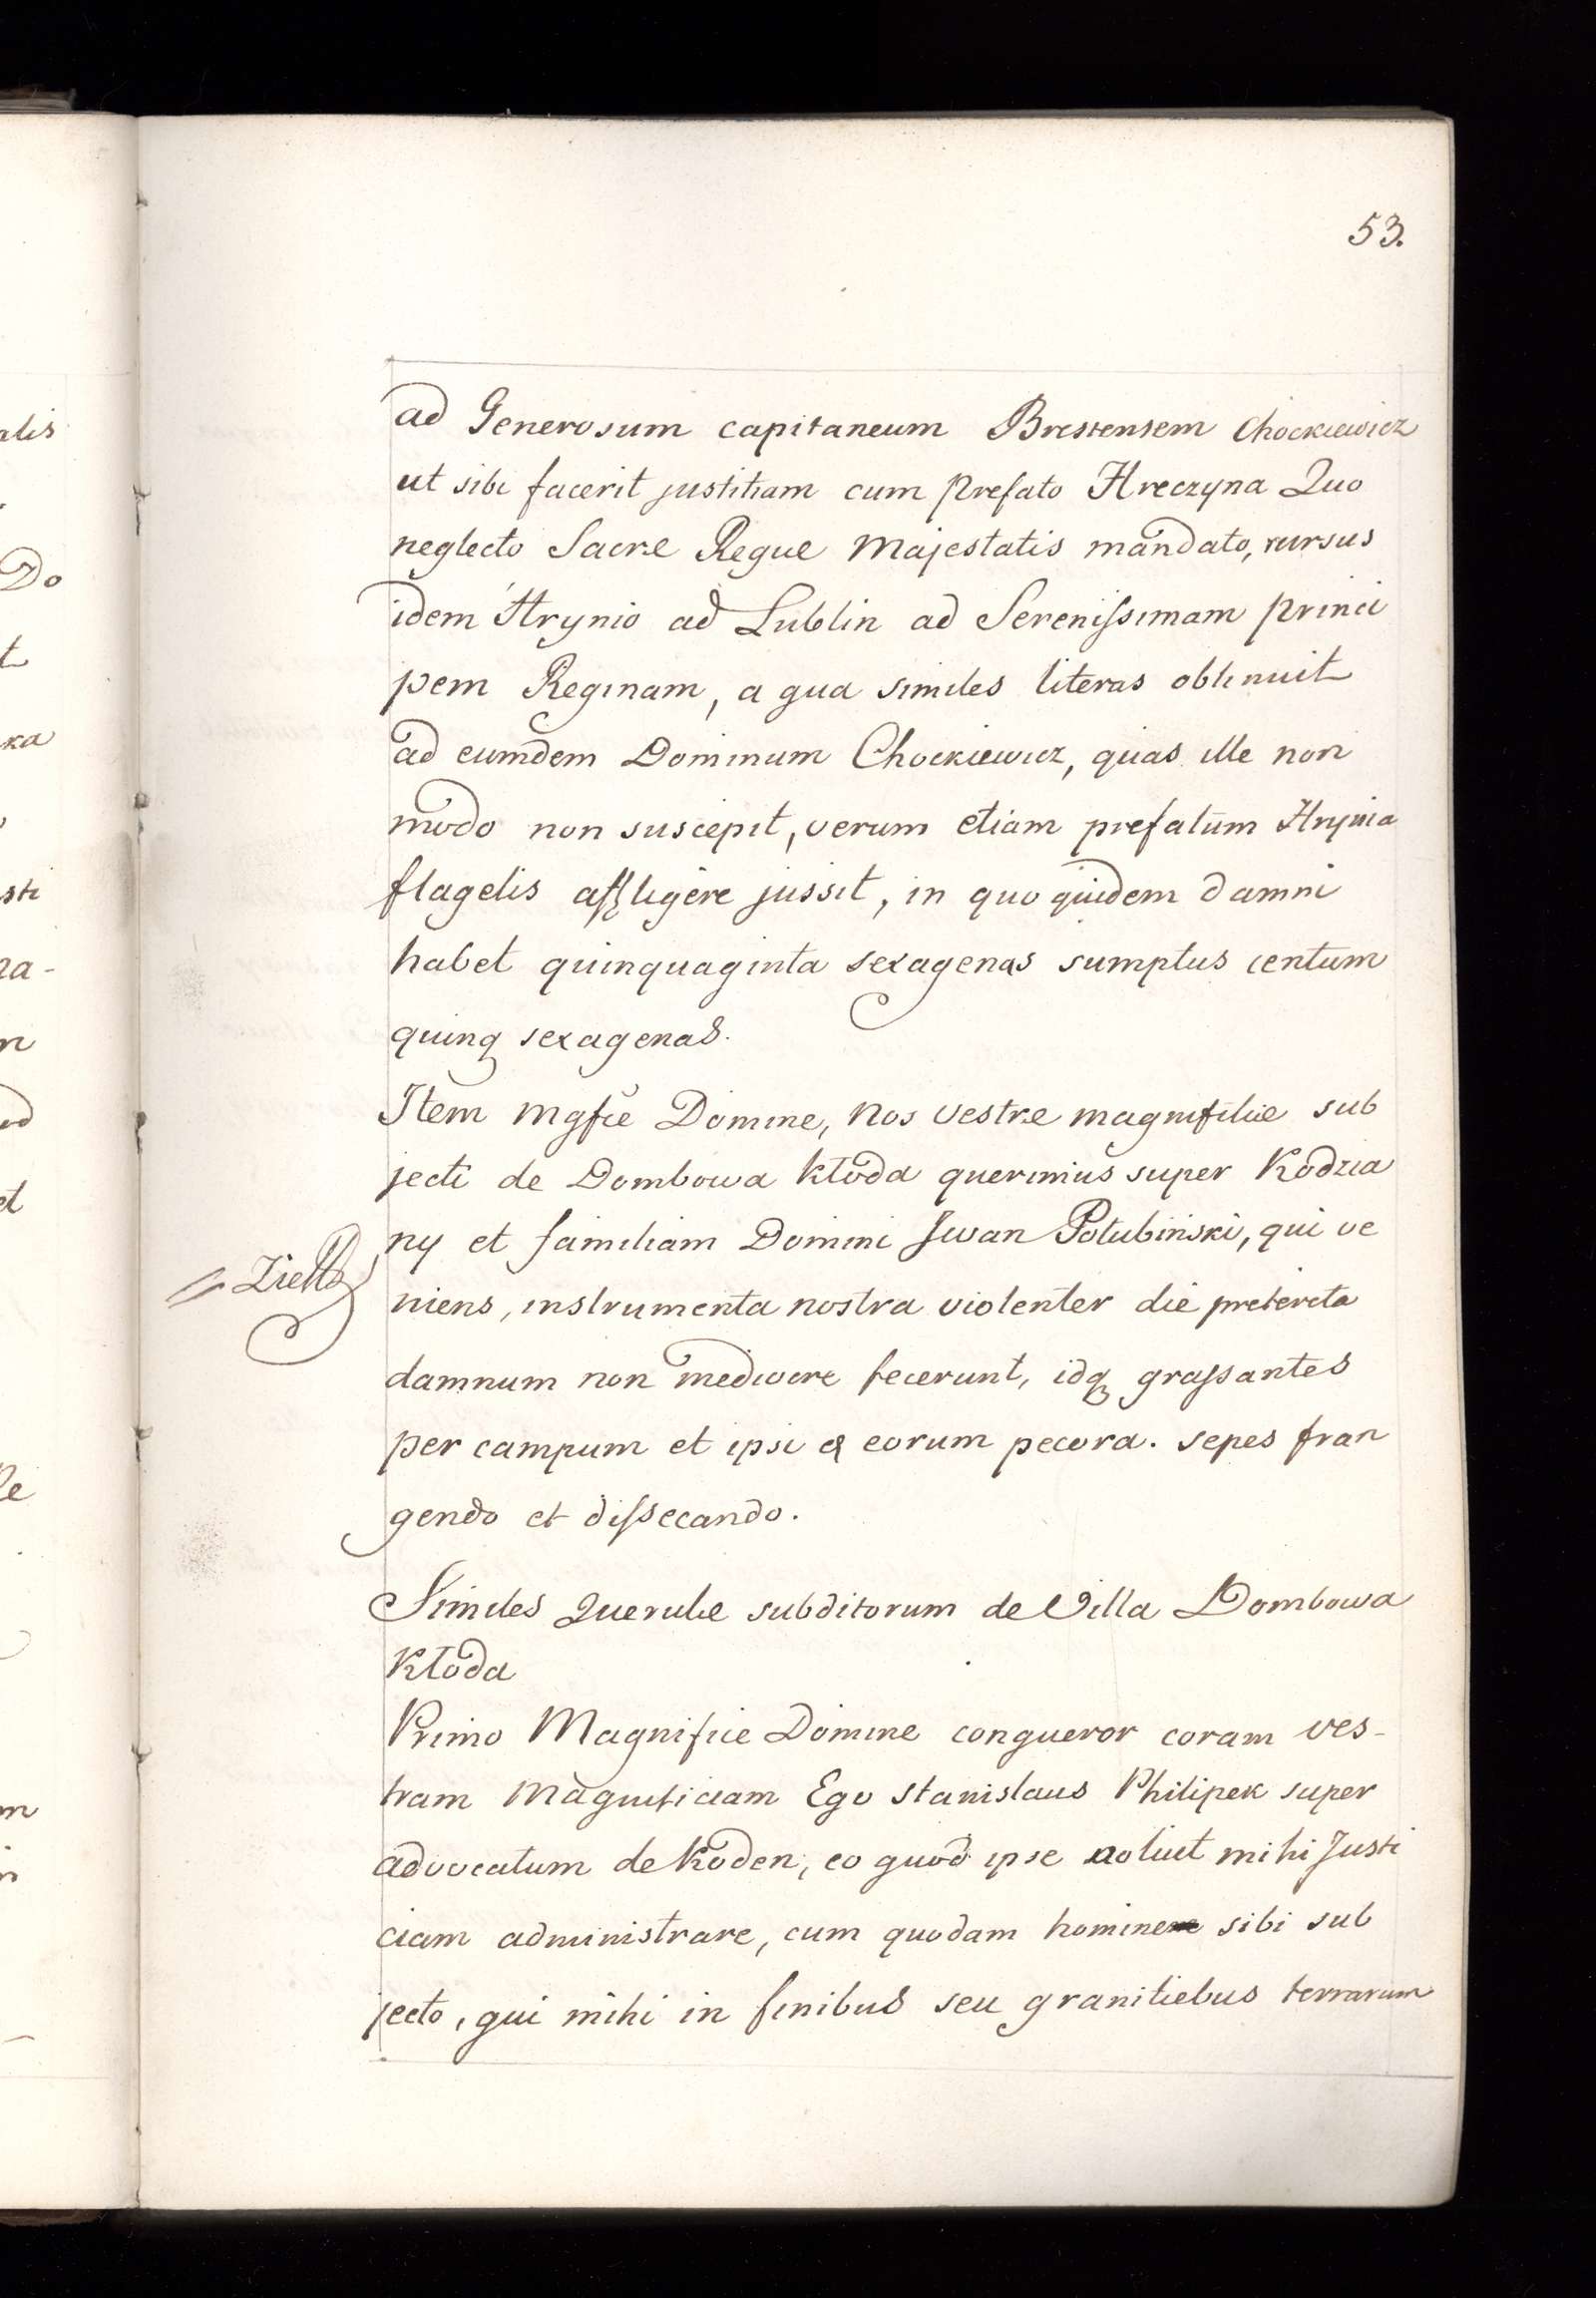 53.
ad Generosum capitaneum Brestensem Chockiewicz
ut sibi facerit justitiam cum prefato Hreczyna Quo
neglecto Sacre Regue Majestatis mandato, rursus
idem Hrynio ad Lublin ad Serenissimam princi
pem Reginam, a qua similes literas obtinuit
ad eumdem Dominum Chockiewicz, quas ille non
modo non suscepit, verum etiam prefatum Hrynia
flagelis affligere jussit, in quo quidem damni
habet quinquaginta sexagenas sumptus centum
quinq sexagenas.
Item mgfce Domine, nos vestre magnificie sub
jecti de Dombowa Kłoda querimus super Kodzia
ny et familiam Domini Jwan Połubiński, qui ve
niens, instrumenta nostra violenter die preterita
damnum non mediocre fecerunt, idq grassantes
per campum et ipsi & eorum pecora. sepes fran
gendo et dissecando.
Similes Querule subditorum de Villa Dombowa
Kłoda
Primo Magnifice Domine conqueror coram ves-
tram Magnificiam Ego Stanislaus Philipek super
advocatum de Koden, eo quod ipse noluit mihi Justi
ciam administrare, cum quodam homine sibi sub
jecto, qui mihi in finibus seu granitiebus terrarum